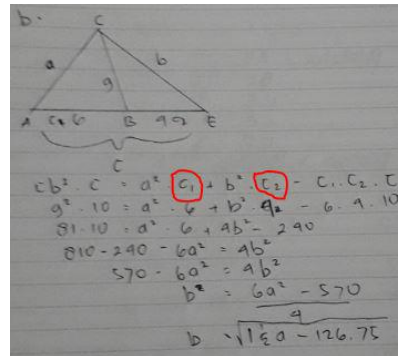 b.
C
a
g
b
A C₁ 6 B 4 C₂ E
C
cb² . C = a² . C₁ + b² . C₂ - C₁ . C₂ . C
9² . 10 = a² . 6 + b² . 4 - 6 . 4 . 10
81 . 10 = a² . 6 + 4b² - 240
810 - 240 - 6a² = 4b²
570 - 6a² = 4b²
b² = 6a² - 570
4